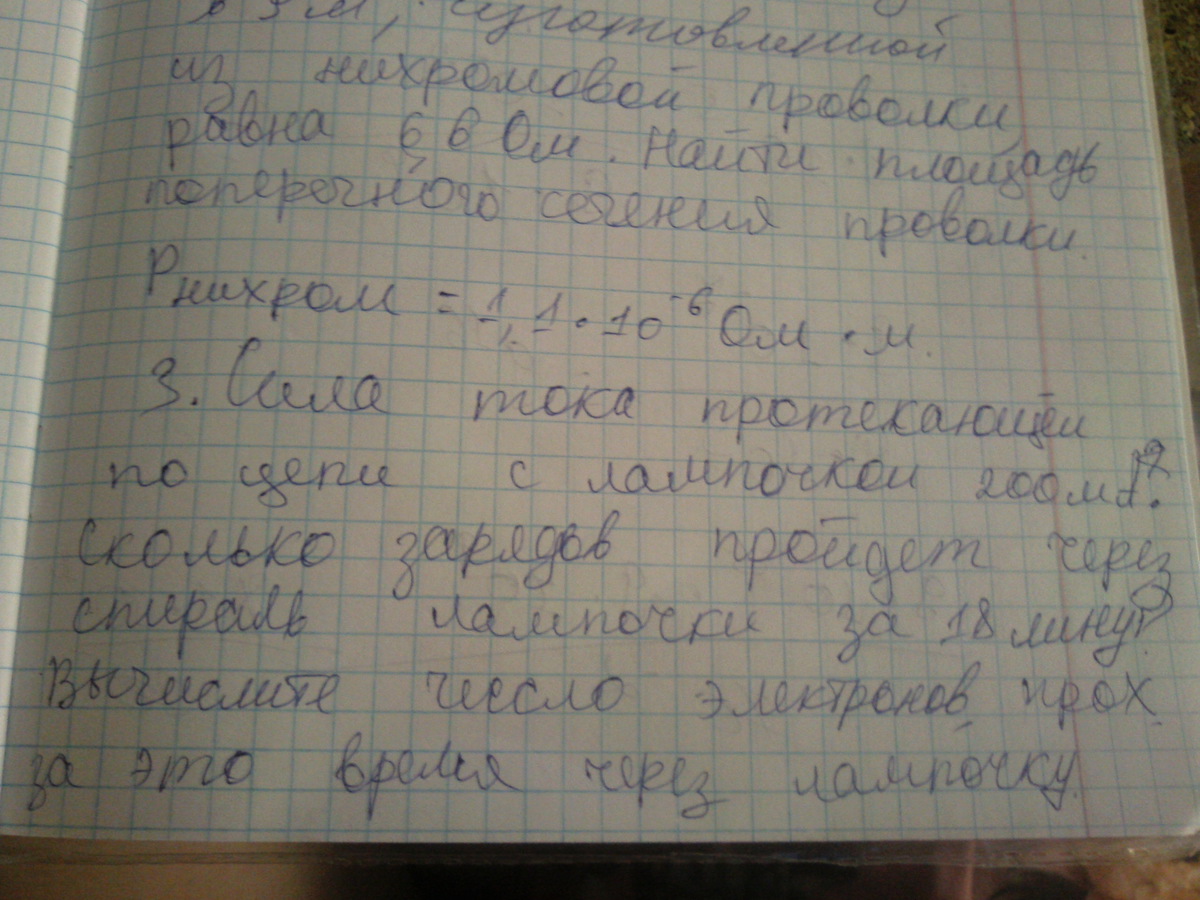 3 м, изготовленной
из нихромовой проволки
равна 6 6 Ом. Найти площадь
поперечного сечения проволки
Pнихром = 1,1 • 10⁻⁶ Ом • м.
3. Сила тока протекающей
по цепи с лампочкой 200 мА?
сколько зарядов пройдет через
спираль лампочки за 18 минут?
Вычислите число электронов прох
за это время через лампочку.